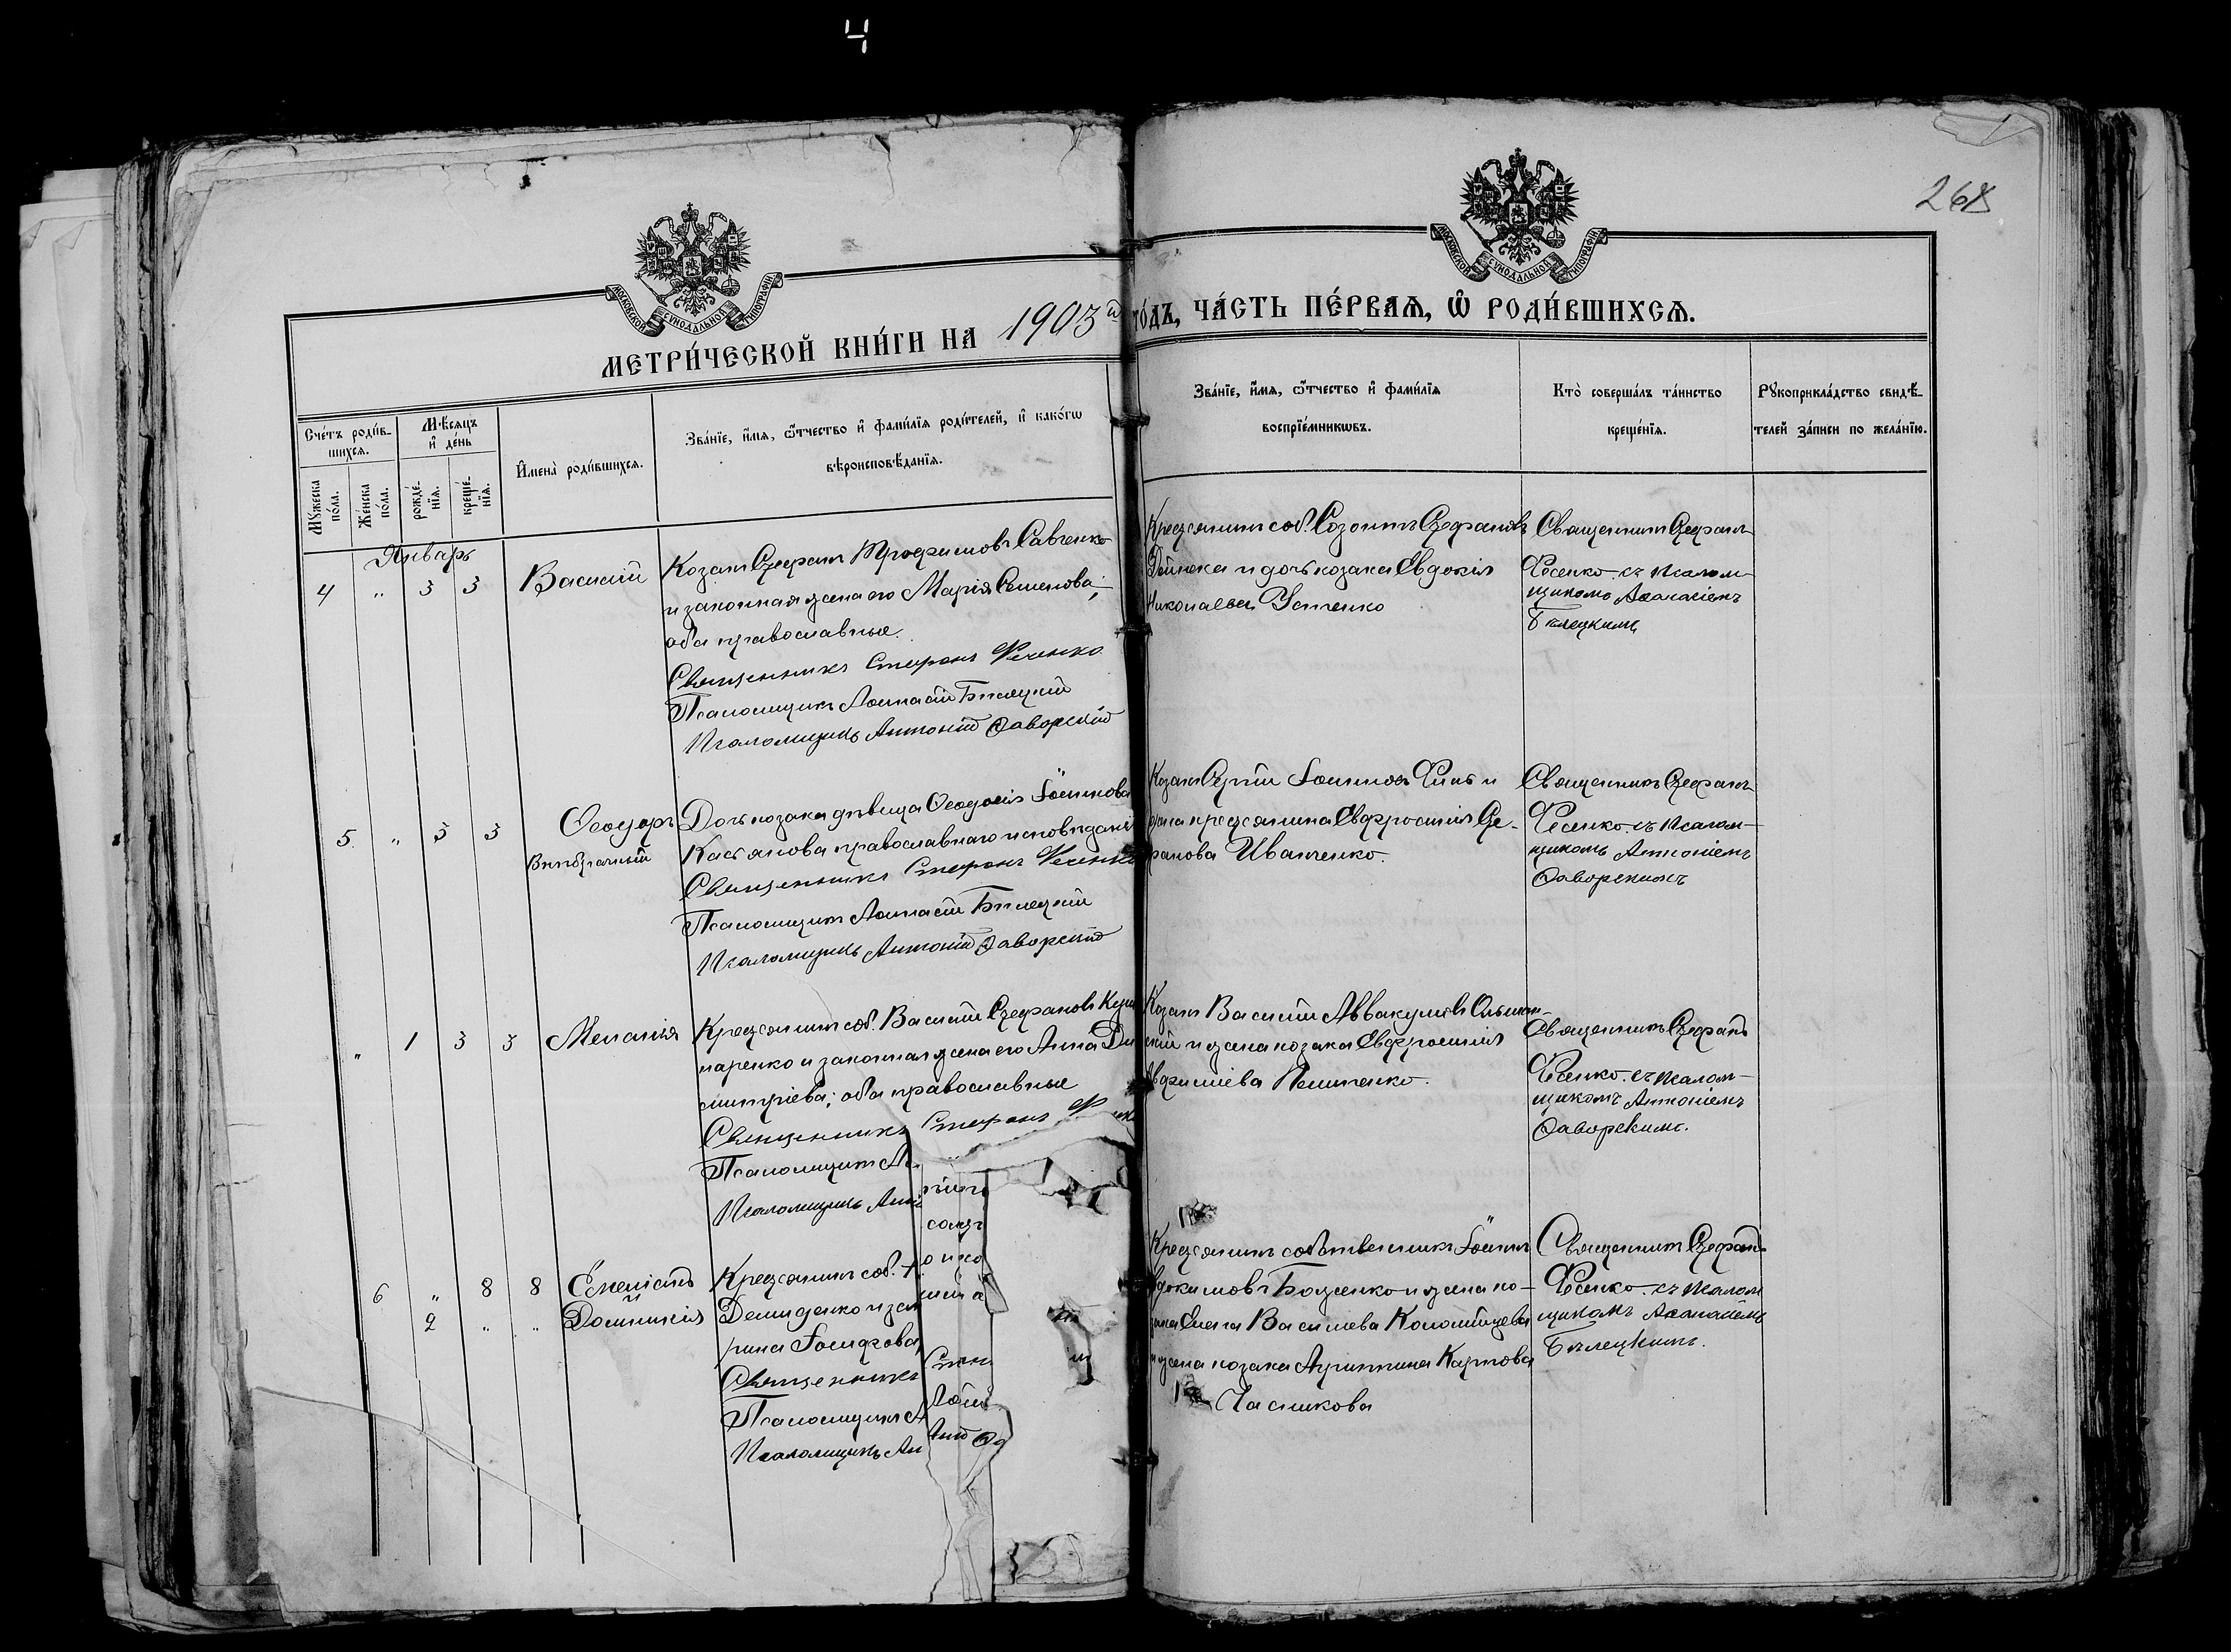 Ч
268
МОСКОВСКОЙ СѴНОДАЛЬНОЙ ТИПОГРАФІИ
МОСКОВСКОЙ СѴНОДАЛЬНОЙ ТИПОГРАФІИ
МЕТРИ́ЧЕСКОЙ КНИ́ГИ НА 1903й ГО́ДЪ, ЧА́СТЬ ПЕ́РВАѦ, Ѡ РОДИ́ВШИХСѦ.
Сче́тъ роди́в-
шихсѧ.
Мꙋ́жеска
по́ла.
Же́нска
по́ла.
Мѣ́сѧцъ
и҆ де́нь
рожде́-
нїѧ.
креще́-
нїѧ.
И҆мена̀ роди́вшихсѧ.
Зва́нїе, и҆́мѧ, ѻ҆́тчество и҆ фами́лїѧ роди́телей, и҆ како́гѡ
вѣроисповѣ́данїѧ.
Зва́нїе, и҆́мѧ, ѻ҆́тчество и҆ фами́лїѧ
воспрїе́мникѡвъ.
Кто̀ соверша́лъ та́инство
креще́нїѧ.
Рꙋкоприкла́дство свидѣ́-
телей за́писи по жела́нїю.
Январь
4 " 3 3 Василій
Козакъ Стефанъ Трофимовъ Савченко
и законная жена его Марія Семенова;
оба православные.
Священникъ Стефанъ Фесенко
Псаломщикъ Аѳанасій Бѣлецкій
Псаломщикъ Антоній Ѳаворскій
Крестьянинъ соб. Созонтъ Стефановъ
Дейнека и дочь козака Евдокія
Николаева Устенко
Священникъ Стефанъ
Фесенко съ псалом-
щикомъ Аѳанасіемъ
Бѣлецкимъ
5 " 3 3 Ѳеодоръ
Внѣбрачный
Дочь козака дѣвица Ѳеодосія Іоаннова
Касьянова православнаго исповѣданія
Священникъ Стефанъ Фесенко
Псаломщикъ Аѳанасій Бѣлецкій
Псаломщикъ Антоній Ѳаворскій
Козакъ Сергій Іоанновъ Финь и
жена крестьянина Евфросинія Сте-
фанова Иванченко.
Священникъ Стефанъ
Фесенко съ псалом-
щикомъ Антоніемъ
Ѳаворскимъ
" 1 3 3 Меланія
Крестьянинъ соб. Василій Стефановъ
наренко и законная жена его Анна Ди-
митріева; оба православные
Священникъ Стефанъ
Псаломщикъ
Псаломщикъ
Козакъ Василій Аввакумовъ Ольшан-
скій и жена козака Евфросинія
Авфиміева
Священникъ Стефанъ
Фесенко съ псалом-
щикомъ Антоніемъ
Ѳаворскимъ.
6 " 8 8 Емеліанъ
и
2 " " Домникія
Крестьянинъ соб.
Демиденко и зак
рина
Священникъ
Псаломщикъ
Псаломщикъ
Крестьянинъ собственникъ Іоаннъ
Евдокимовъ Боженко и жена ко-
зака Елена Васильева Коломійцева
и жена козака Агриппина Карпова
Часникова
Священникъ Стефанъ
Фесенко съ псалом
щикомъ Аѳанасіемъ
Бѣлецкимъ.